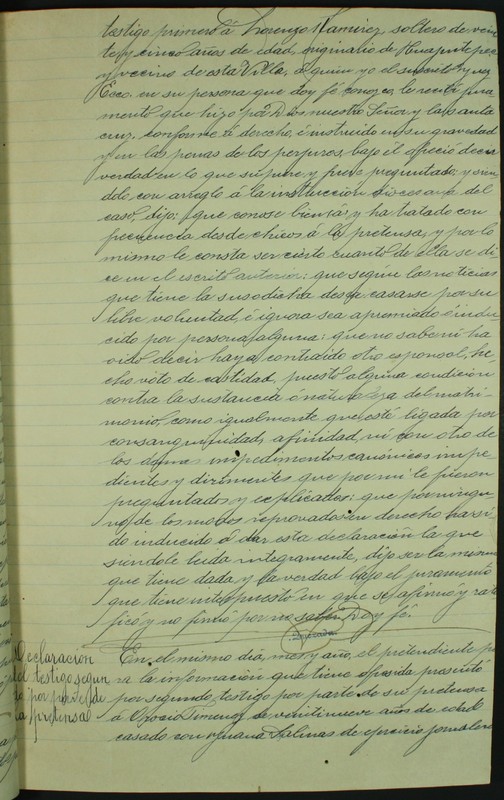 testigo primero á Lorenzo Ramirez, soltero de vein
te y cinco años de edad, originario de
y vecino de esta Villa, á quien yo el suscrito Juez
Ecco. en su persona que doy fé conozco, le recibí jura
mento que hizo por Dios nuestro Señor y la santa
cruz, conforme á derecho, é instruido en su gravedad
y en las penas de los perjuros, bajo él ofreció decir
verdad en lo que supiere y fuere preguntado; y sien
dolo con arreglo á la instruccion diocesana del
caso, dijo: que conose bien y ha tratado con
frecuencia desde chicos á la pretensa, y por lo
mismo le consta ser cierto cuanto de ella se di
ce en el escrito anterior: que según las noticias
que tiene la susodicha desea casarse por su
libre voluntad, é ignora sea apremiado é indu
cido por persona alguna: que no sabe ni ha
oido decir haya contraido otro esponsal, he
cho voto de castidad, puesto alguna condición
contra la sustancia ó naturaleza del matri
monio, como igualmente que esté ligada por
consanguinidad, afinidad, ni con otro de
los demas impedimentos canónicos impe
dientes y dirimentes que por mi le fueron
preguntados y explicados: que por ningu
no de los modos reprovados en derecho ha si
do inducido á dar esta declaración la que
siendole leida integramente, dijo ser la misma
que tiene dada y la verdad bajo el juramento
que tiene interpuesto en que se afirmó y rati
ficó y no firmó por no saber. Doy fé.
Declaracion
del testigo segun
do por parte de
la pretensa
En el mismo dia, mes y año, el pretendiente pa
ra la información que tiene ofresida presentó
por segundo testigo por parte de su pretensa
á Jimenez de veintinueve años de edad
casado con Juana Salinas de ejercicio jornalero